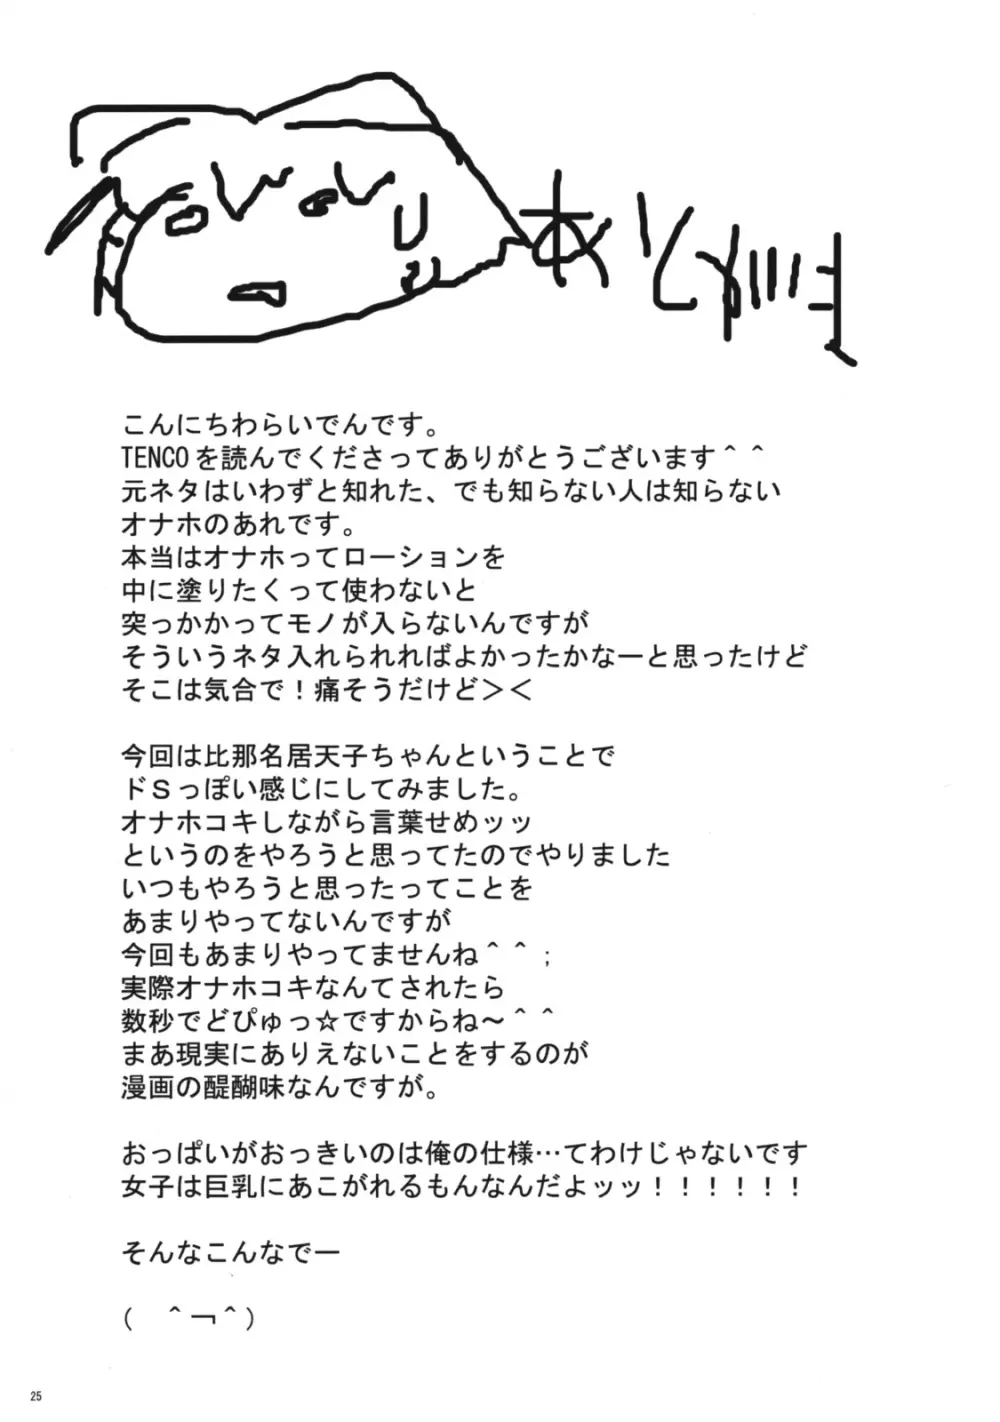 あとがき
こんにちわらいでんです。
TENCOを読んでくださってありがとうございます＾＾
元ネタはいわずと知れた、でも知らない人は知らない
オナホのあれです。
本当はオナホってローションを
中に塗りたくって使わないと
突っかかってモノが入らないんですが
そういうネタ入れられればよかったかなーと思ったけど
そこは気合で！痛そうだけど＞＜
今回は比那名居天子ちゃんということで
ドＳっぽい感じにしてみました。
オナホコキしながら言葉せめッッ
というのをやろうと思ってたのでやりました
いつもやろうと思ったってことを
あまりやってないんですが
今回もあまりやってませんね＾＾；
実際オナホコキなんてされたら
数秒でどぴゅっ☆ですからね～＾＾
まあ現実にありえないことをするのが
漫画の醍醐味なんですが。
おっぱいがおっきいのは俺の仕様…てわけじゃないです
女子は巨乳にあこがれるもんなんだよッッ！！！！！！
そんなこんなでー
(　＾￢＾)
25